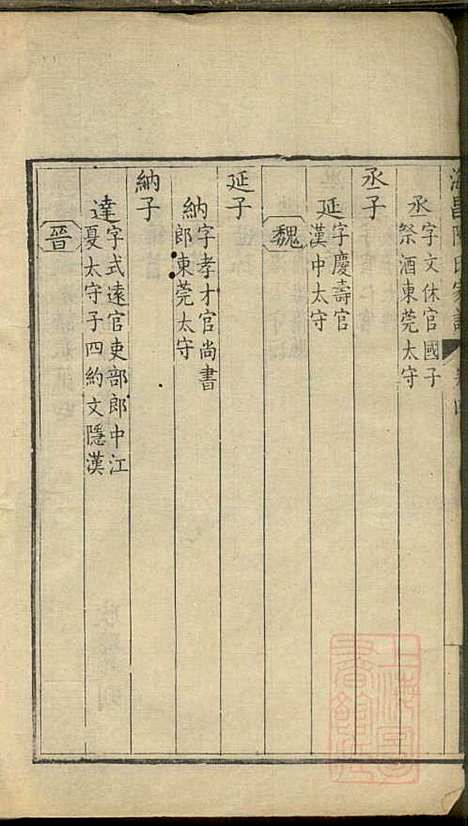 海昌陳氏家譜
丞 字文休官國子
祭酒東莞太守
丞子
延 字慶壽官
漢中太守
魏
延子
納 字孝才官尚書
郎東莞太守
納子
達 字式遠官吏部郎中江
夏太守子四約文隱漢
晉